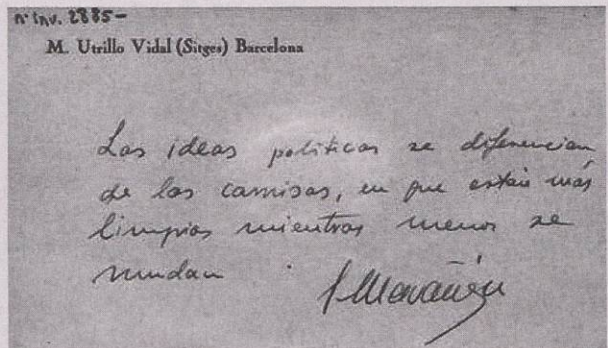 n.º inv. 2885-
M. Utrillo Vidal (Sitges) Barcelona
Las ideas politicas se diferencian
de las camisas, en que están más
limpias mientras menos se
mudan.
G Marañón